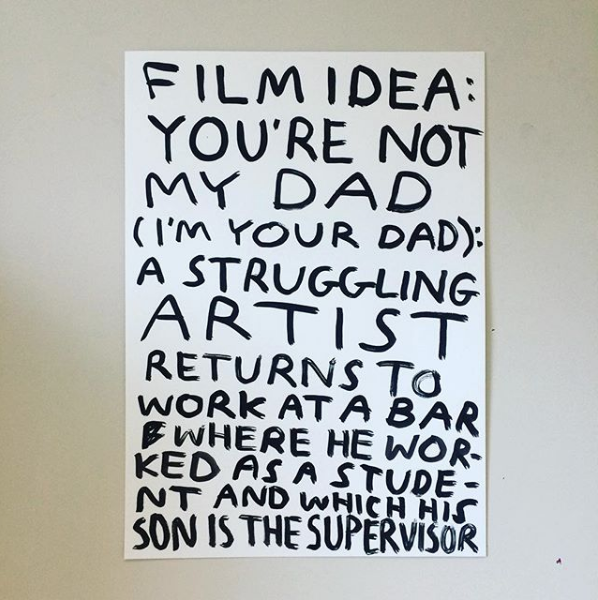 FILM IDEA:
YOU'RE NOT
MY DAD
(I'M YOUR DAD):
A STRUGGLING
ARTIST
RETURNS TO
WORK AT A BAR
WHERE HE WOR-
KED AS A STUDE-
NT AND WHICH HIS
SON IS THE SUPERVISOR